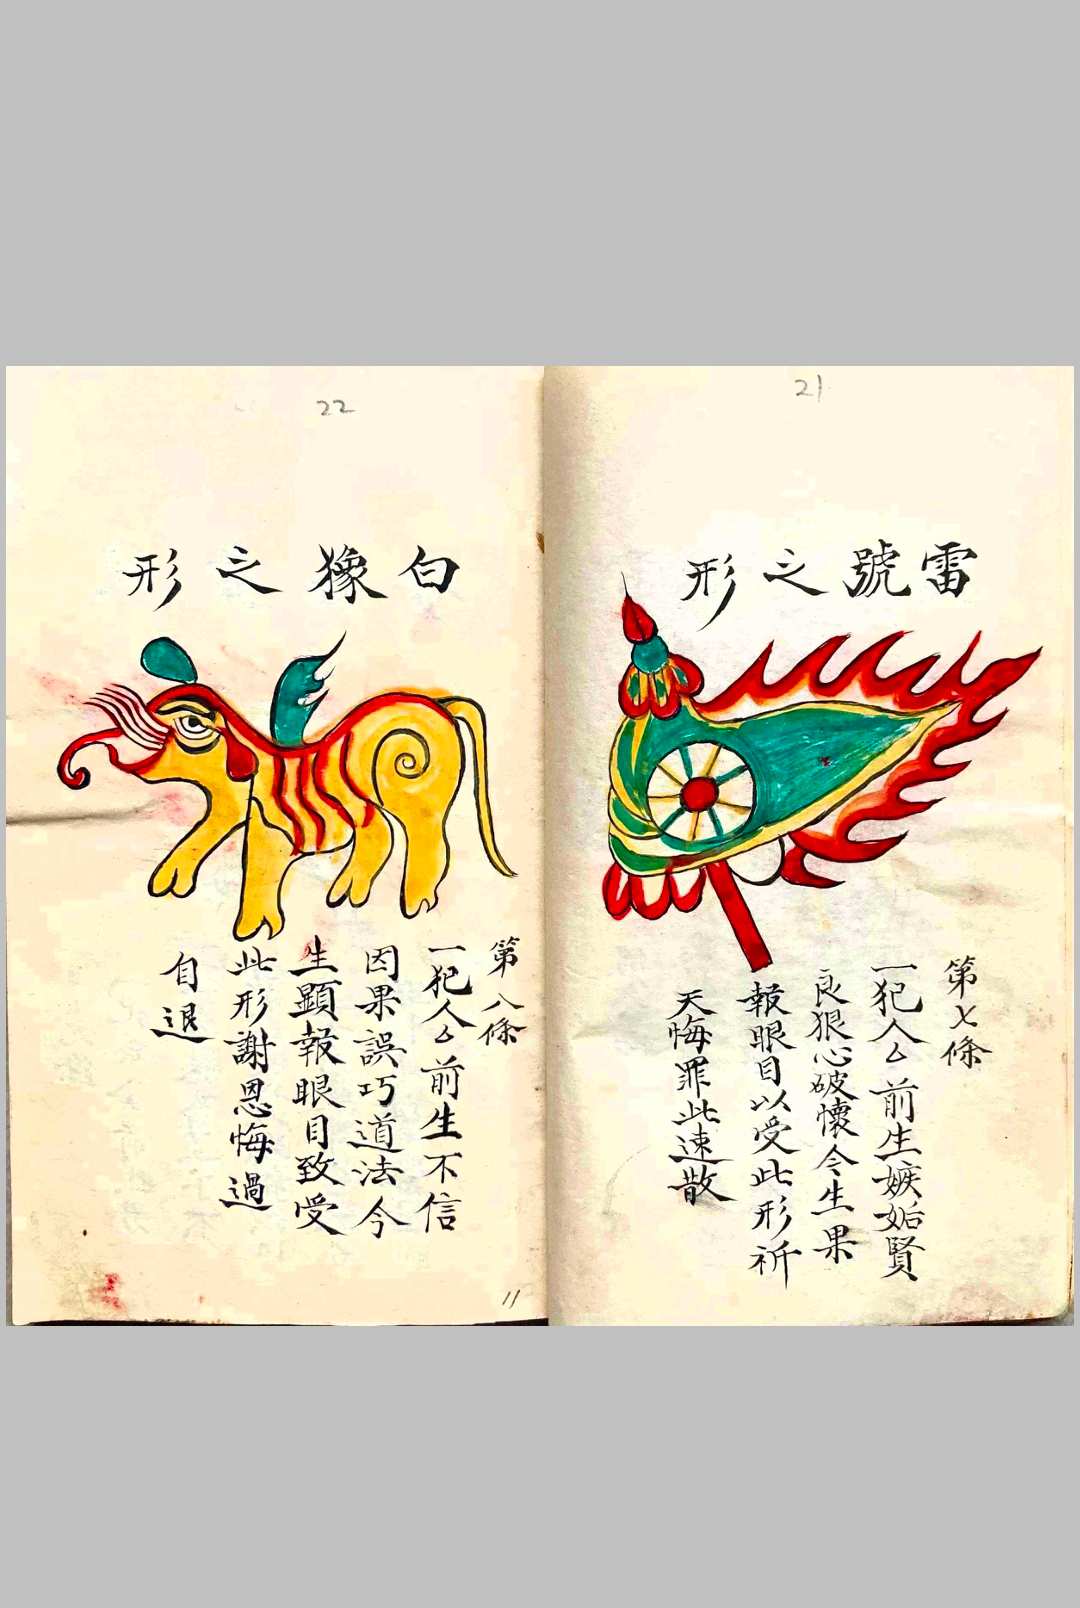 21
雷號之形
第七條
一犯人厶前生嫉妬賢
良狠心破懷今生果
報眼目以受此形祈
天悔罪此速散
22
白獴之形
第八條
一犯人厶前生不信
因果誤巧道法今
生顯報眼目致受
此形謝恩悔過
自退
11